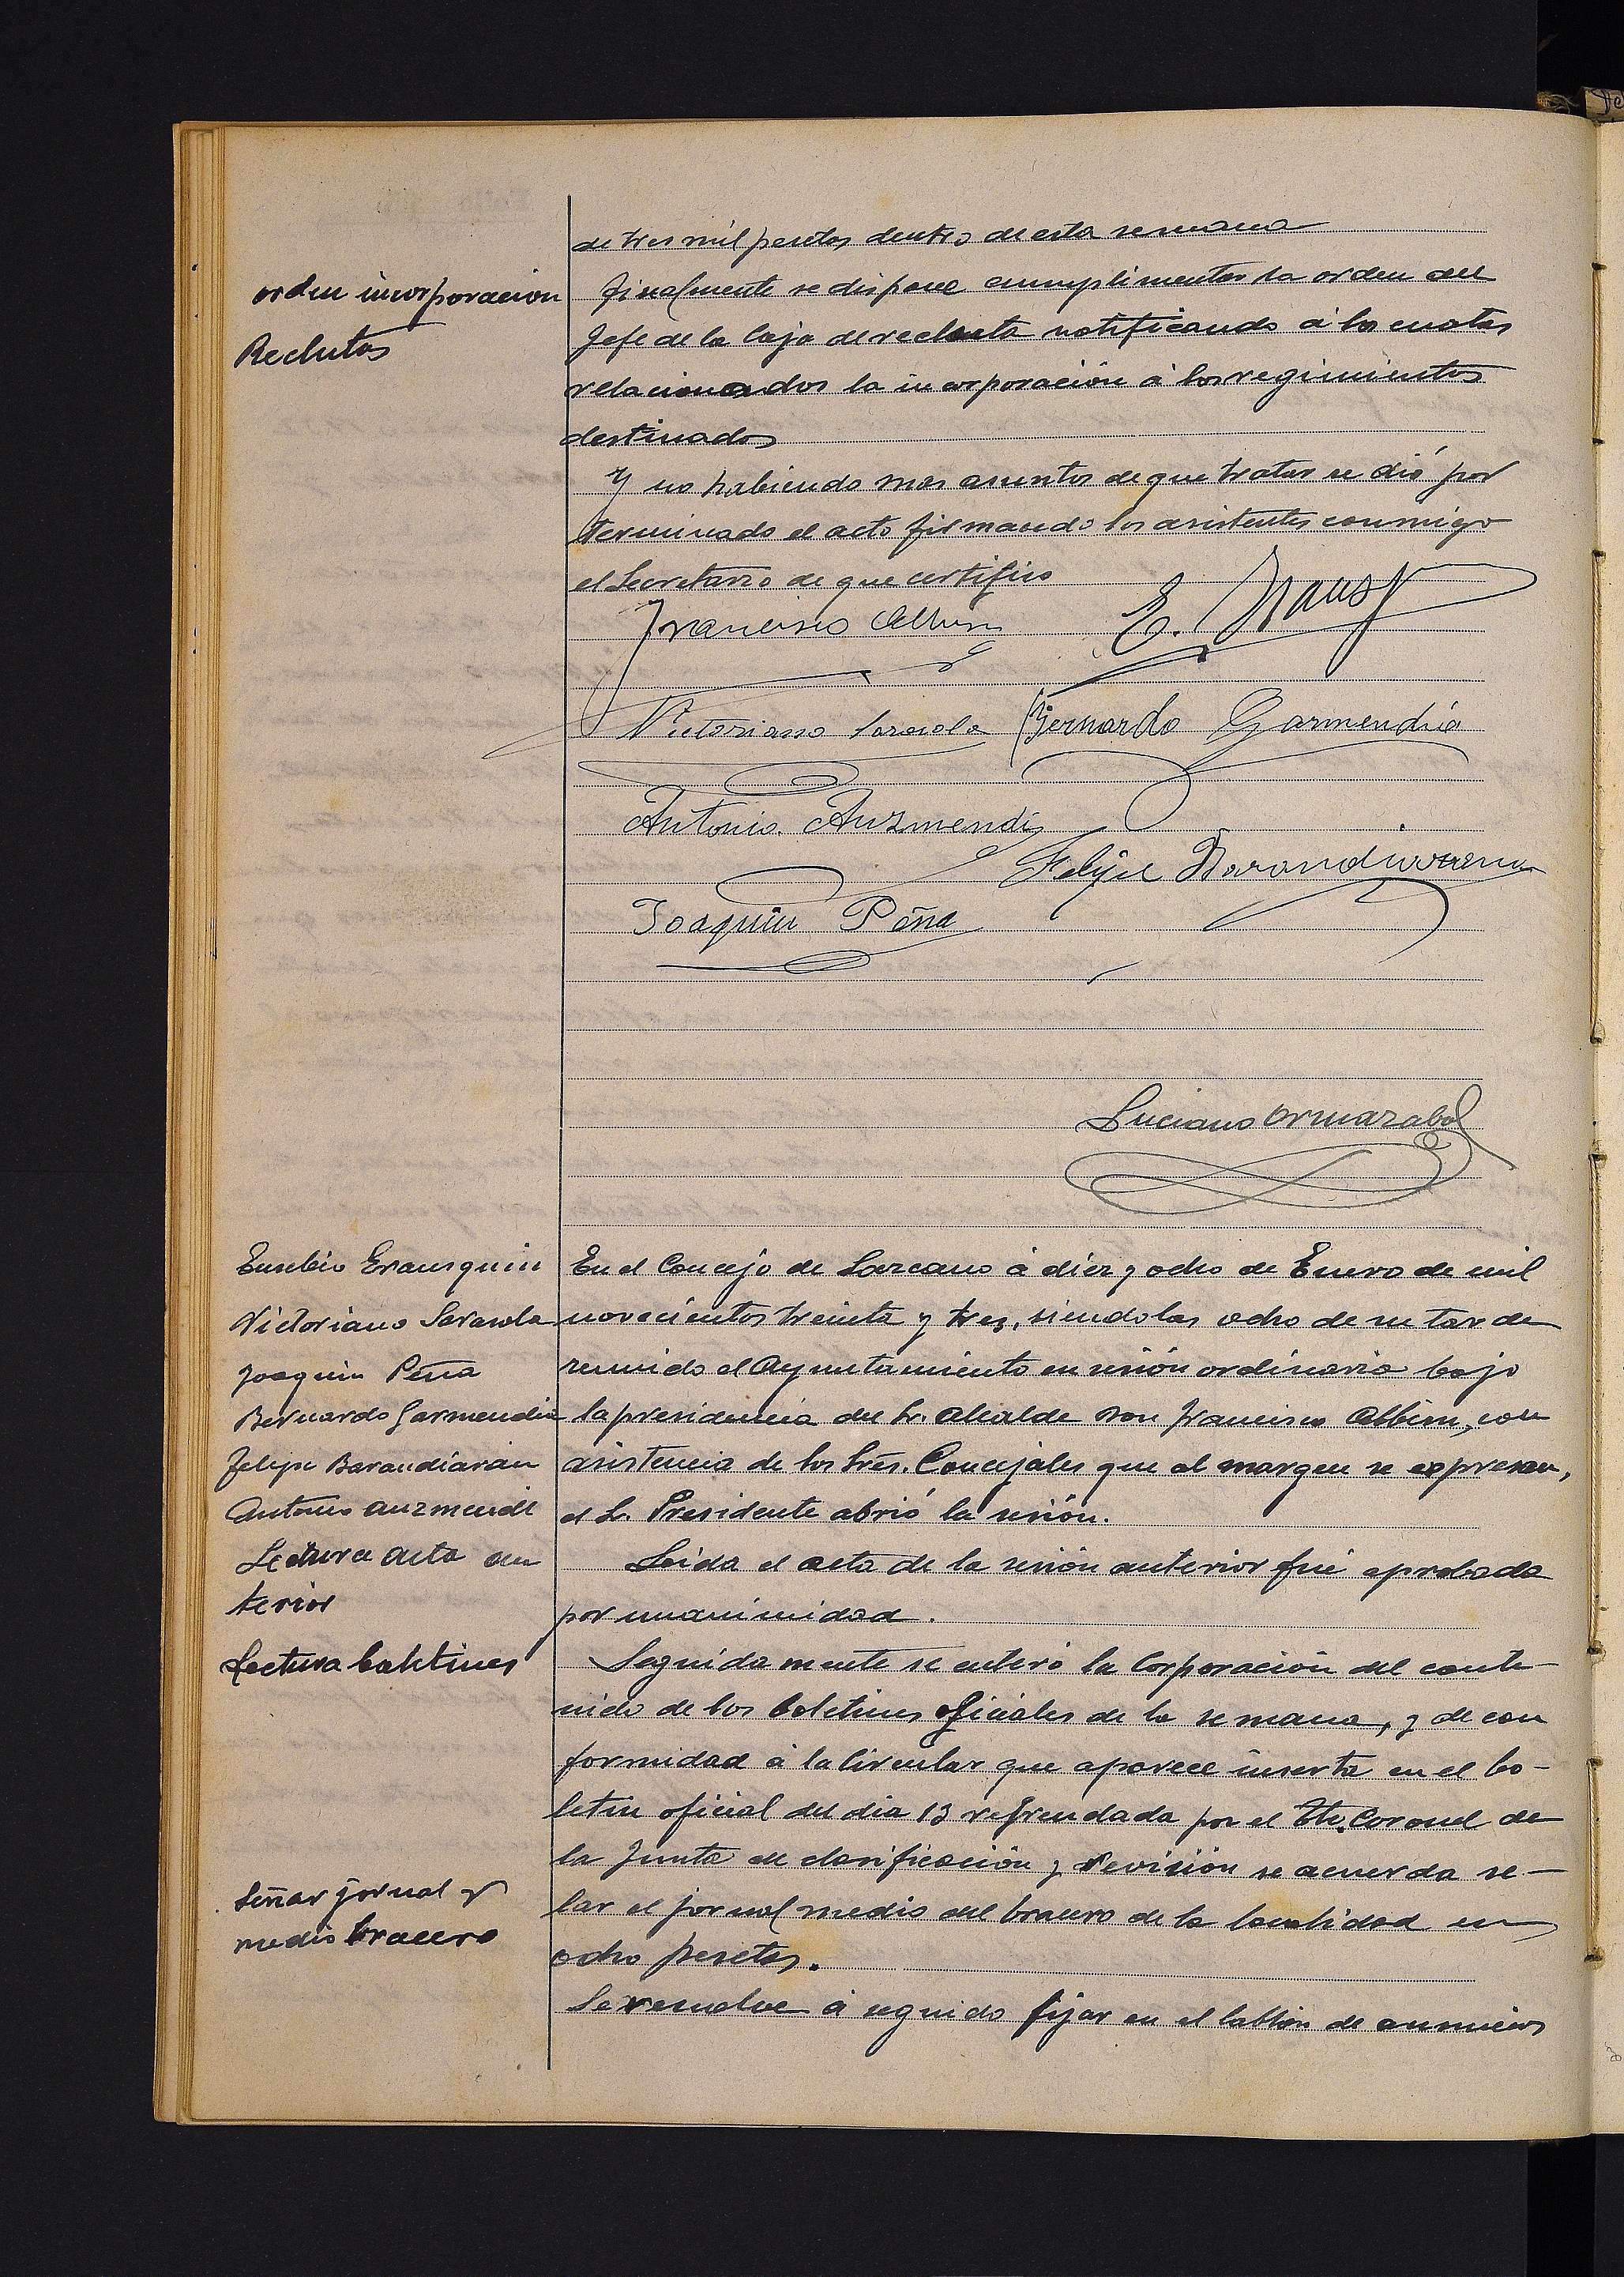 de tres mil pesetas dentro de esta semana
orden incorporación
Reclutas
Finalmente se dispone cumplimentar la orden del
Jefe de la Caja de recluta notificando á los cuotas
relacionados la incorporación á los regimientos
destinados
Y no habiendo mas asuntos de que tratar se dió por
terminado el acto firmando los asistentes conmigo
el Secretario de que certifico
Francisco Albisu
E.
Victoriano Sarasola Bernardo Garmendia
Antonio Auzmendi
Felipe Barandiaran
Joaquin Peña
Luciano Ormazabal
Eusebio Erausquin
Victoriano Sarasola
Joaquin Peña
Bernardo Garmendia
Felipe Barandiarán
Antonio Auzmendi
Lectura acta an
terior
Lectura boletines
Señar jornal
medio bracero
En el Concejo de Lazcano á diez y ocho de Enero de mil
novecientos treinta y tres, siendo las ocho de su tarde
reunido el Ayuntamiento en sesión ordinaria bajo
la presidencia del Sr. Alcalde Don Francisco Albisu, con
asistencia de los Sres. Concejales que al margen se expresan,
el Sr. Presidente abrió la sesión.
Leida el acta de la sesión anterior fué aprobada
por unanimidad.
Seguidamente se enteró la Corporación del conte-
nido de los boletines oficiales de la semana, y de con
formidad á la Circular que aparece inserta en el bo-
letin oficial del dia 13 refrendada por el Tte. Coronel de
la Junta de clasificación y revisión se acuerda se-
lar el jornal medio del bracero de la localidad en
ocho pesetas.
Se resuelve á seguido fijar en el tablón de anuncios